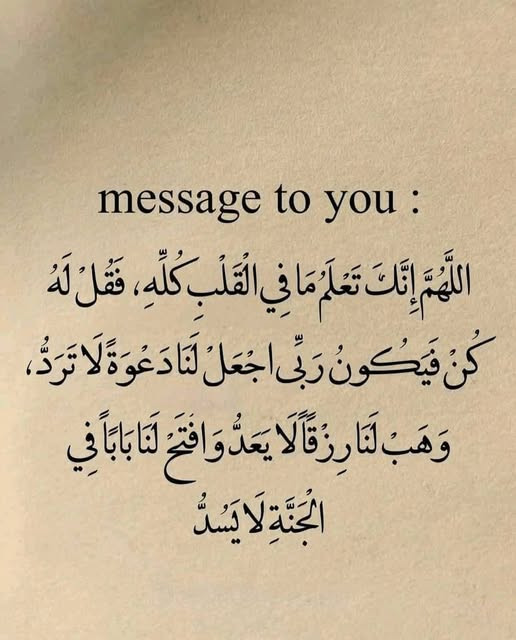 message to you :
اللَّهُمَّ إِنَّكَ تَعْلَمُ مَا فِي الْقَلْبِ كُلِّهِ، فَقُلْ لَهُ
كُنْ فَيَكُونُ رَبِّى اجْعَلْ لَنَا دَعْوَةً لَا تَرَدُّ،
وَهَبْ لَنَا رِزْقًاً لَا يَعَدُّ وَافْتَحْ لَنَا بَابَاً فِي
الْجَنَّةِ لَا يَسُدُّ